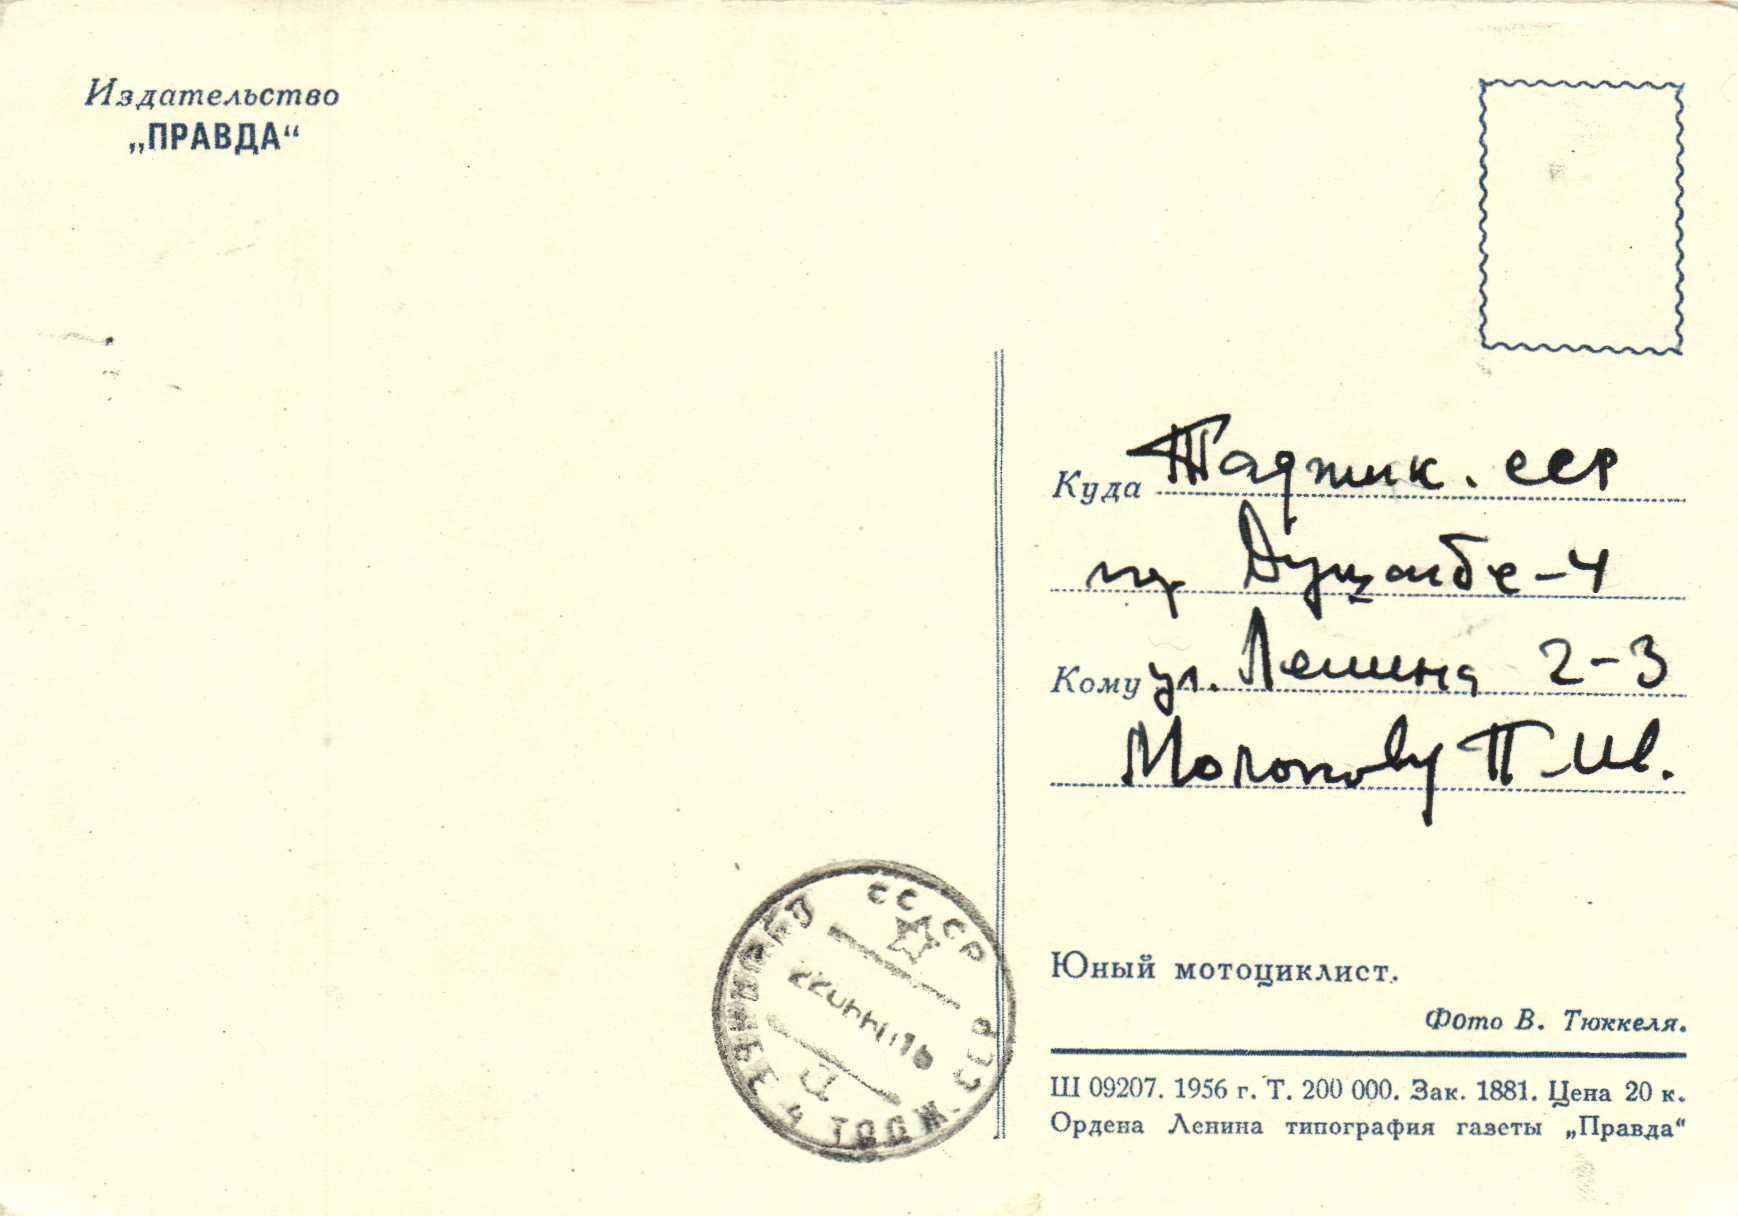 Издательство
„ПРАВДА“
Куда Таджик. ССР
гор Душанбе-4
Кому ул. Ленина 2-3
Молокову П. Ив.
СССР
Юный мотоциклист.
Фото В. Тюккеля.
Ш 09207. 1956 г. Т. 200 000. Зак. 1881. Цена 20 к.
Ордена Ленина типография газеты „Правда“